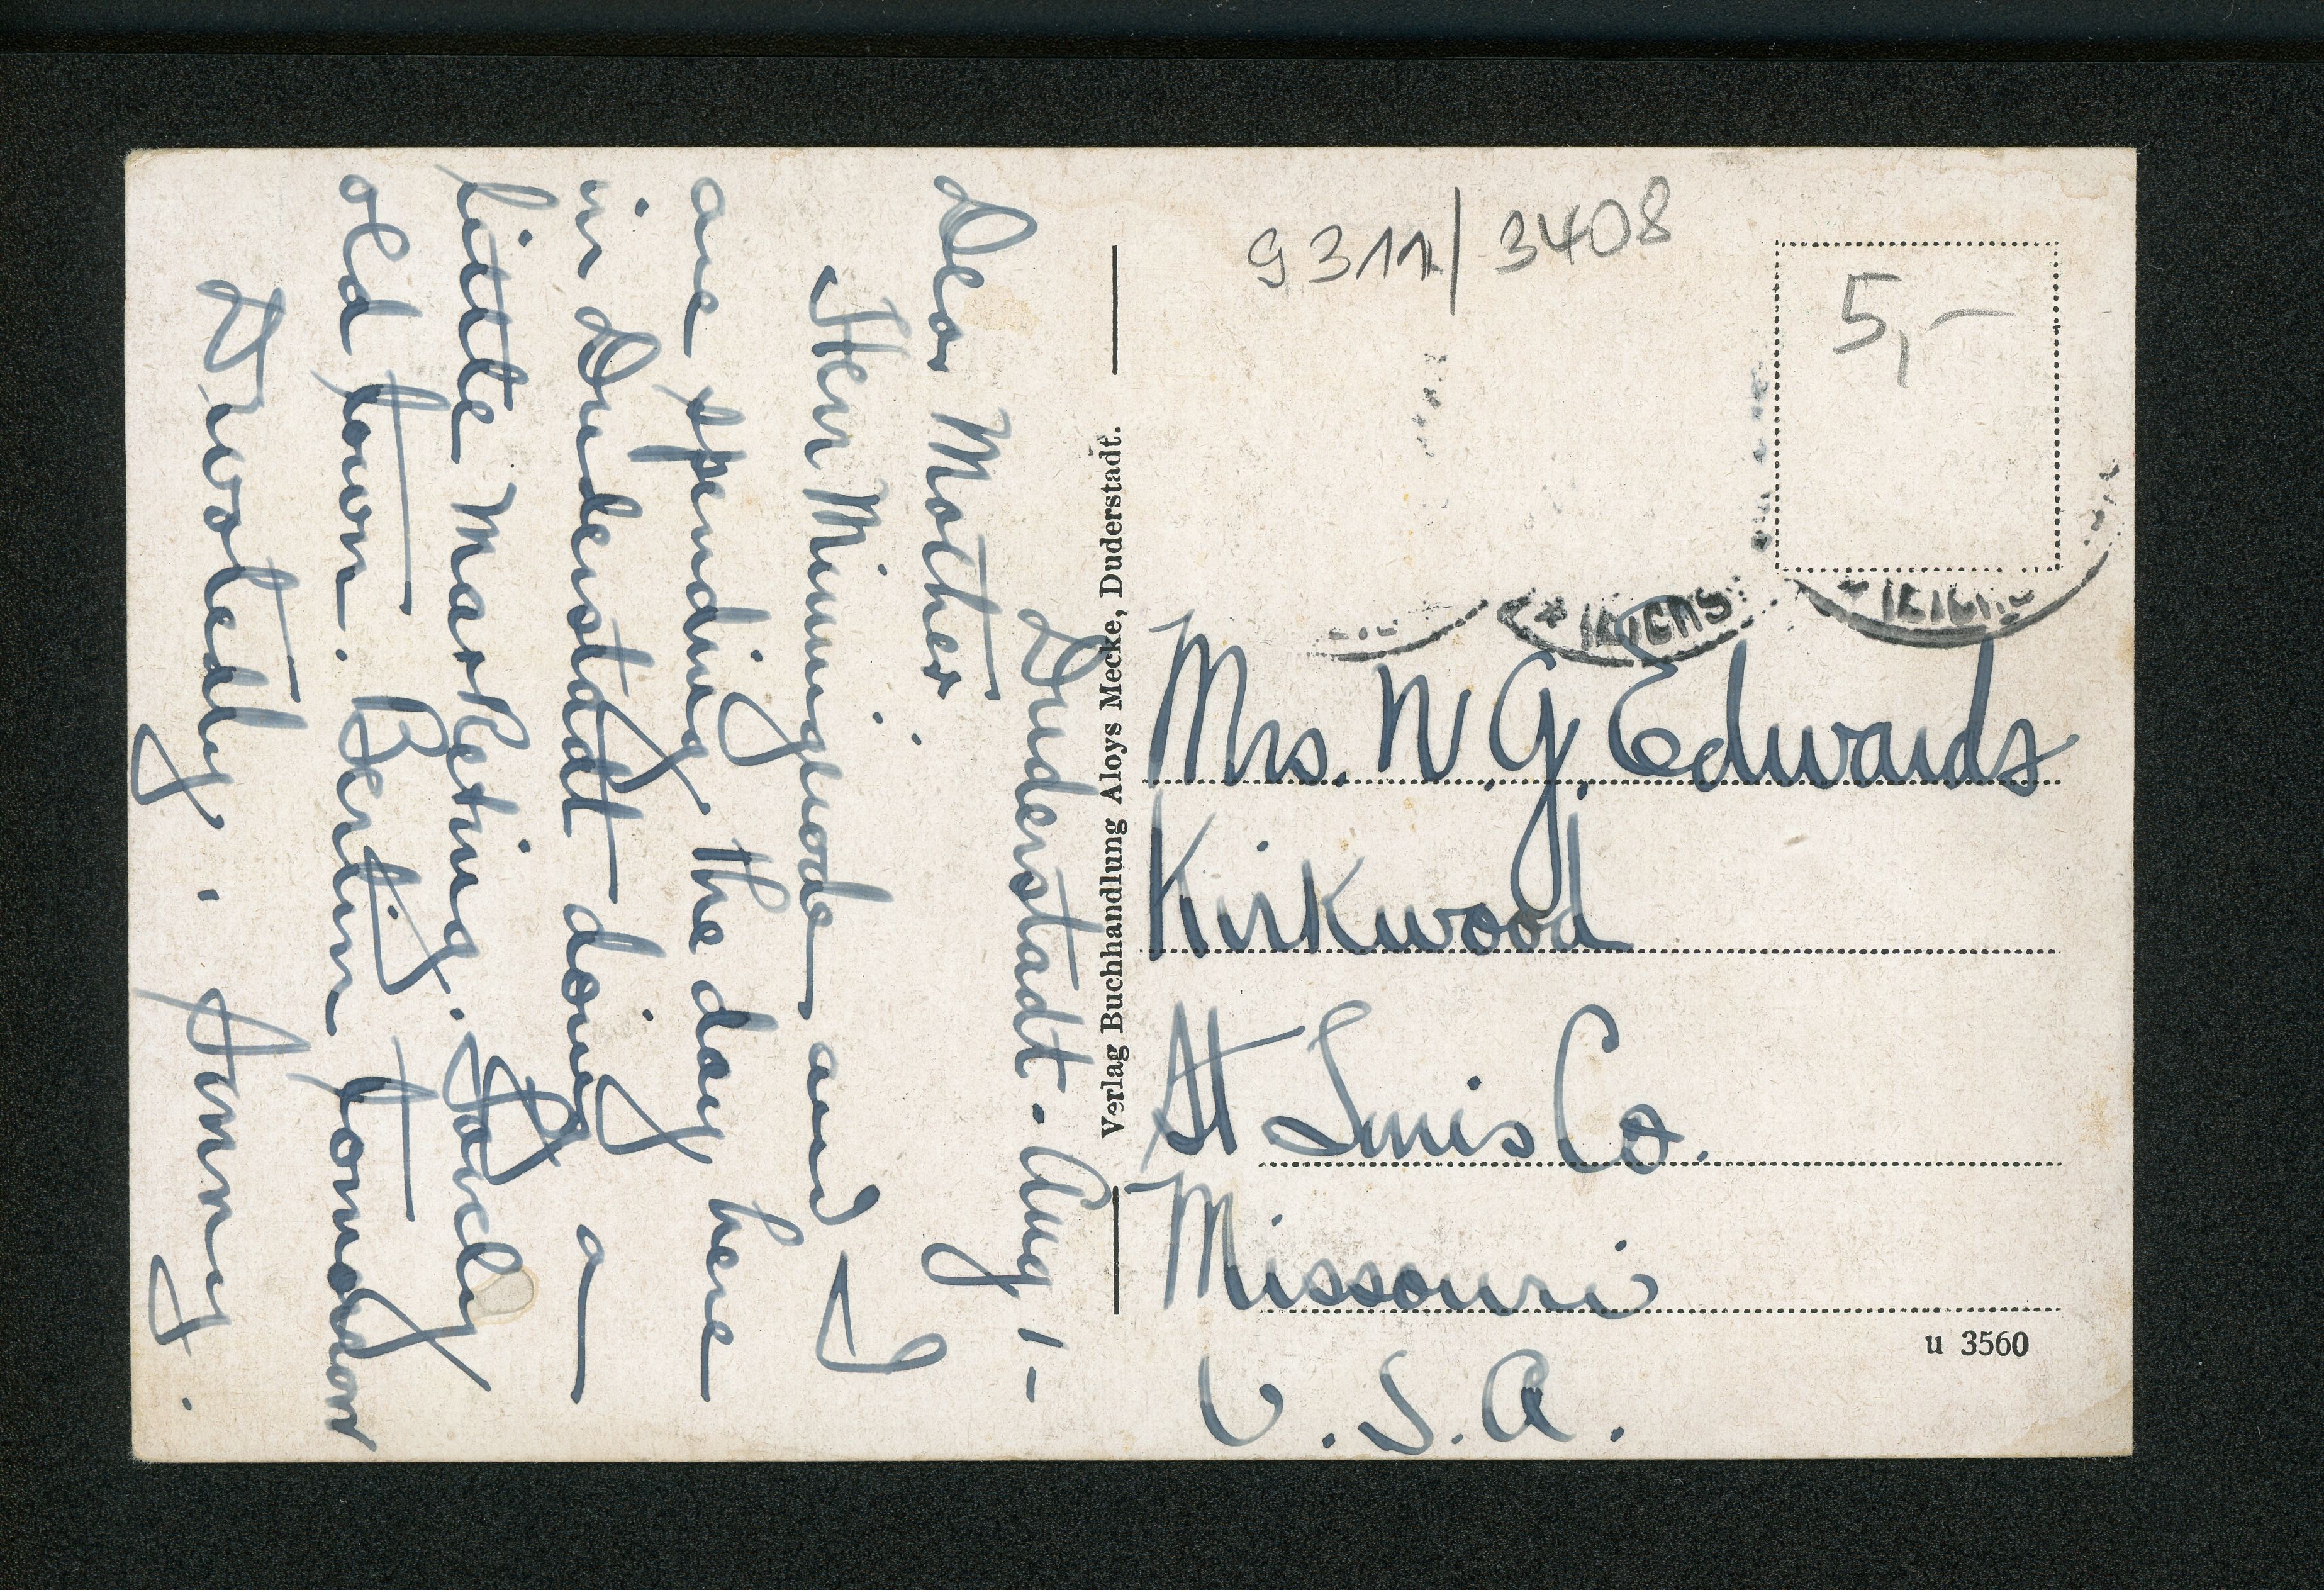 Duderstadt. Aug 1-
Dear Mother
Herr Minnigerode and I
are spending the day here
in Duderstadt doing a
little marketing. Lovely
old town. Berlin tomorrow
Devotedly. Fanny.
Verlag Buchhandlung Aloys Mecke, Duderstadt.
9311/3408
5,-
Mrs. W. G. Edwards
Kirkwood
St Louis Co.
Missouri
U.S.A.
u 3560